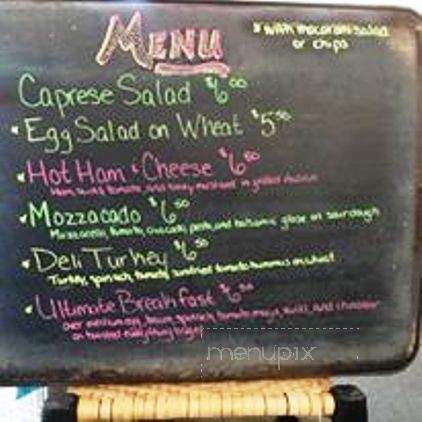 MENU
* with macaroni salad
or chips
Caprese Salad $6.00
* Egg Salad on Wheat $5.50
* Hot Ham & Cheese $6.50
Ham, swiss, tomato, and honey mustard on grilled
* Mozzacado $6.50
Mozzarella, tomato, avocado, pesto, and balsamic glaze on sourdough
* Deli Turkey $6.50
Turkey, spinach, tomato, sundried tomato hummus on wheat
* Ultimate Breakfast $6.50
over medium egg, bacon, spinach, tomato, mayo, swiss, and cheddar
on toasted everything bagel
menupix